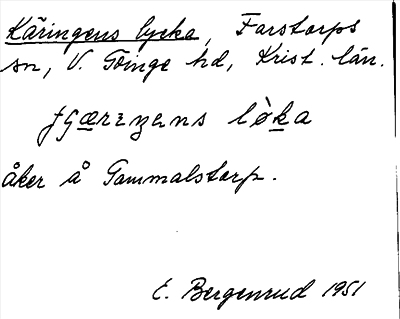 Käringens lycka, Farstorps
sn, V. Göinge hd, Krist. län.
åker å Gammalstorp.
E. Bergenrud 1951